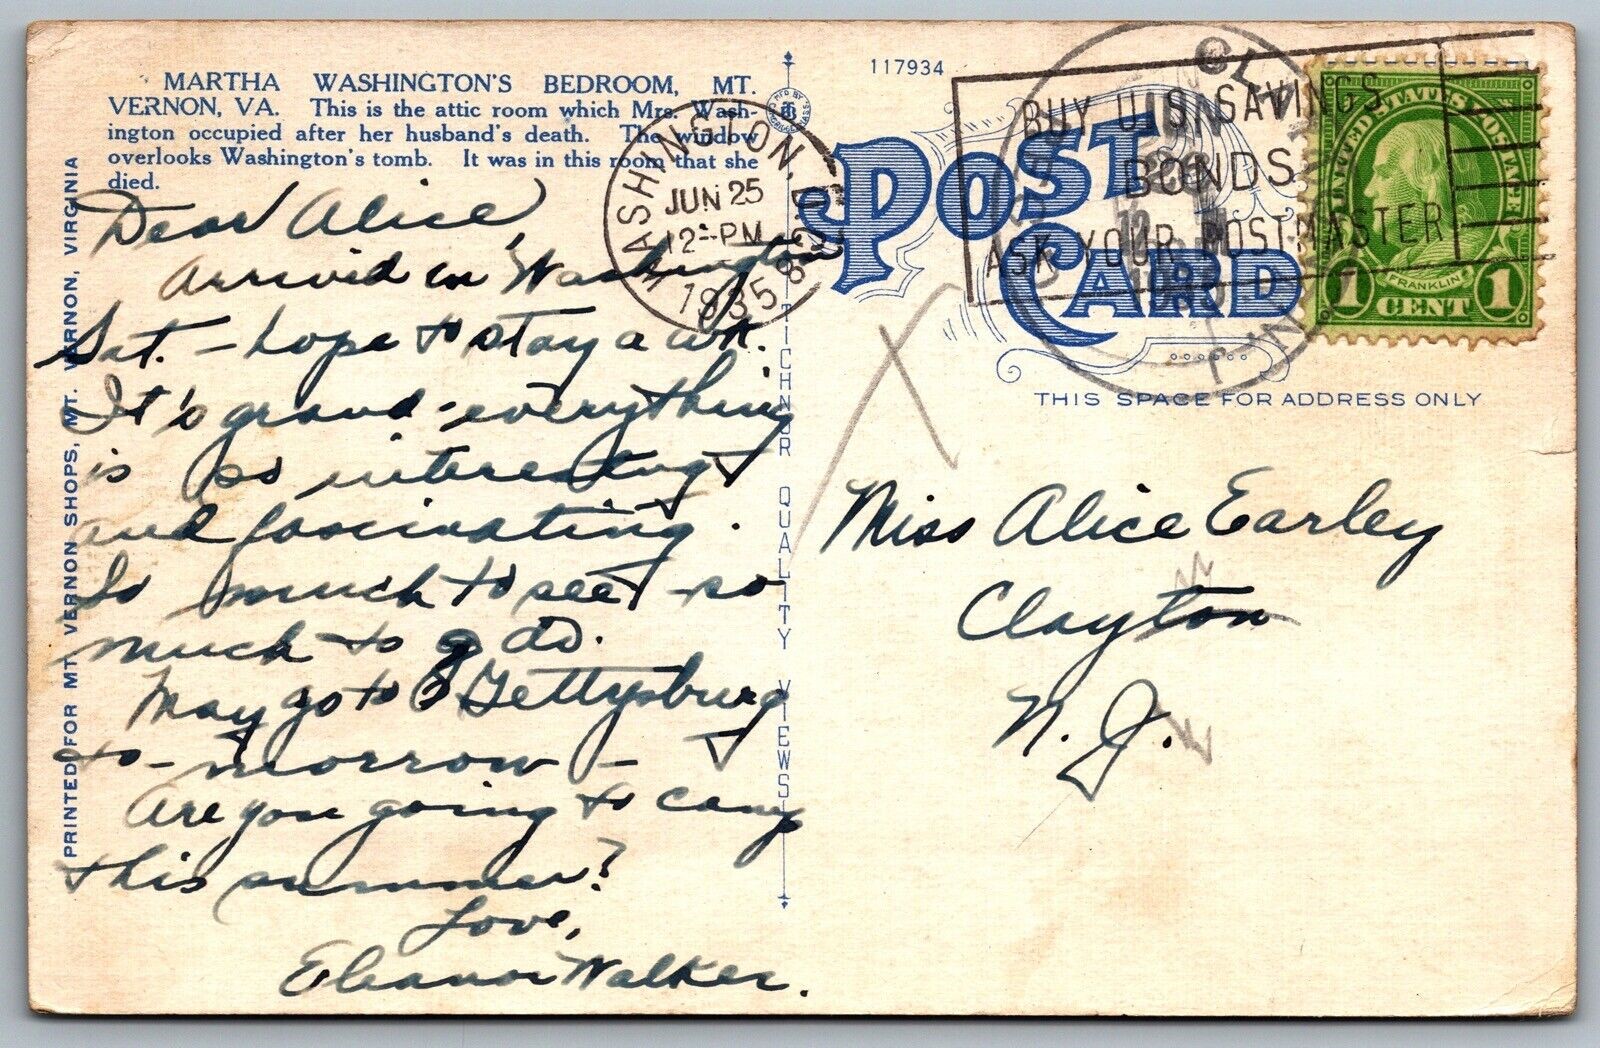 MARTHA WASHINGTON'S BEDROOM, MT.
VERNON, VA. This is the attic room which Mrs. Wash-
ington occupied after her husband's death. The window
overlooks Washington's tomb. It was in this room that she
died.
Dear Alice,
Arrived in Washington
Sat. – hope to stay a wk.
It's grand - everything
is so interesting
and fascinating.
So much to see - so
much to g do.
May go to G Gettysburg
to-morrow –
Are you going to camp
this summer?
Love,
Eleanor Walker.
PRINTED FOR MT. VERNON SHOPS, MT. VARNON, VIRGINIA
TICHNOR QUALITY VIEWS
117934
POST CARD
WASHINGTON, D.C.
JUN 25
12-PM
1935
8
BUY U. S. SAVINGS
BONDS
ASK YOUR POSTMASTER
UNITED STATES POSTAGE
FRANKLIN
1 CENT 1
THIS SPACE FOR ADDRESS ONLY
Miss Alice Earley
Clayton
N. J.